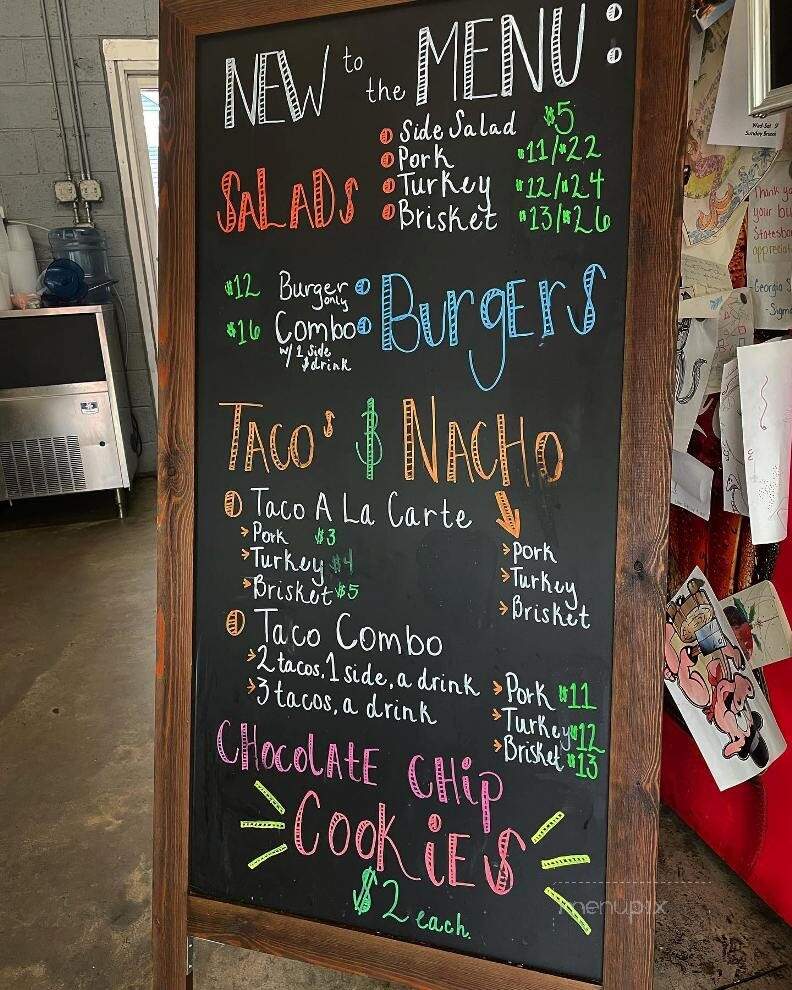 NEW to the MENU:
SALADS
Side Salad $5
Pork $11/$22
Turkey $12/$24
Brisket $13/$26
BURGERS
$12 Burger only
$16 Combo
w/ 1 side
& drink
TACO'S & NACHO
Taco A La Carte
Pork $3
Turkey $4
Brisket $5
Pork
Turkey
Brisket
Taco Combo
2 tacos, 1 side, a drink
3 tacos, a drink
Pork $11
Turkey $12
Brisket $13
CHOCOLATE CHIP
COOKIES
$2 each.
Wed-Sat
Sunday
Thank you
your bu
Statesbo
appreciat
-Georgia S
-Sigm
menupix